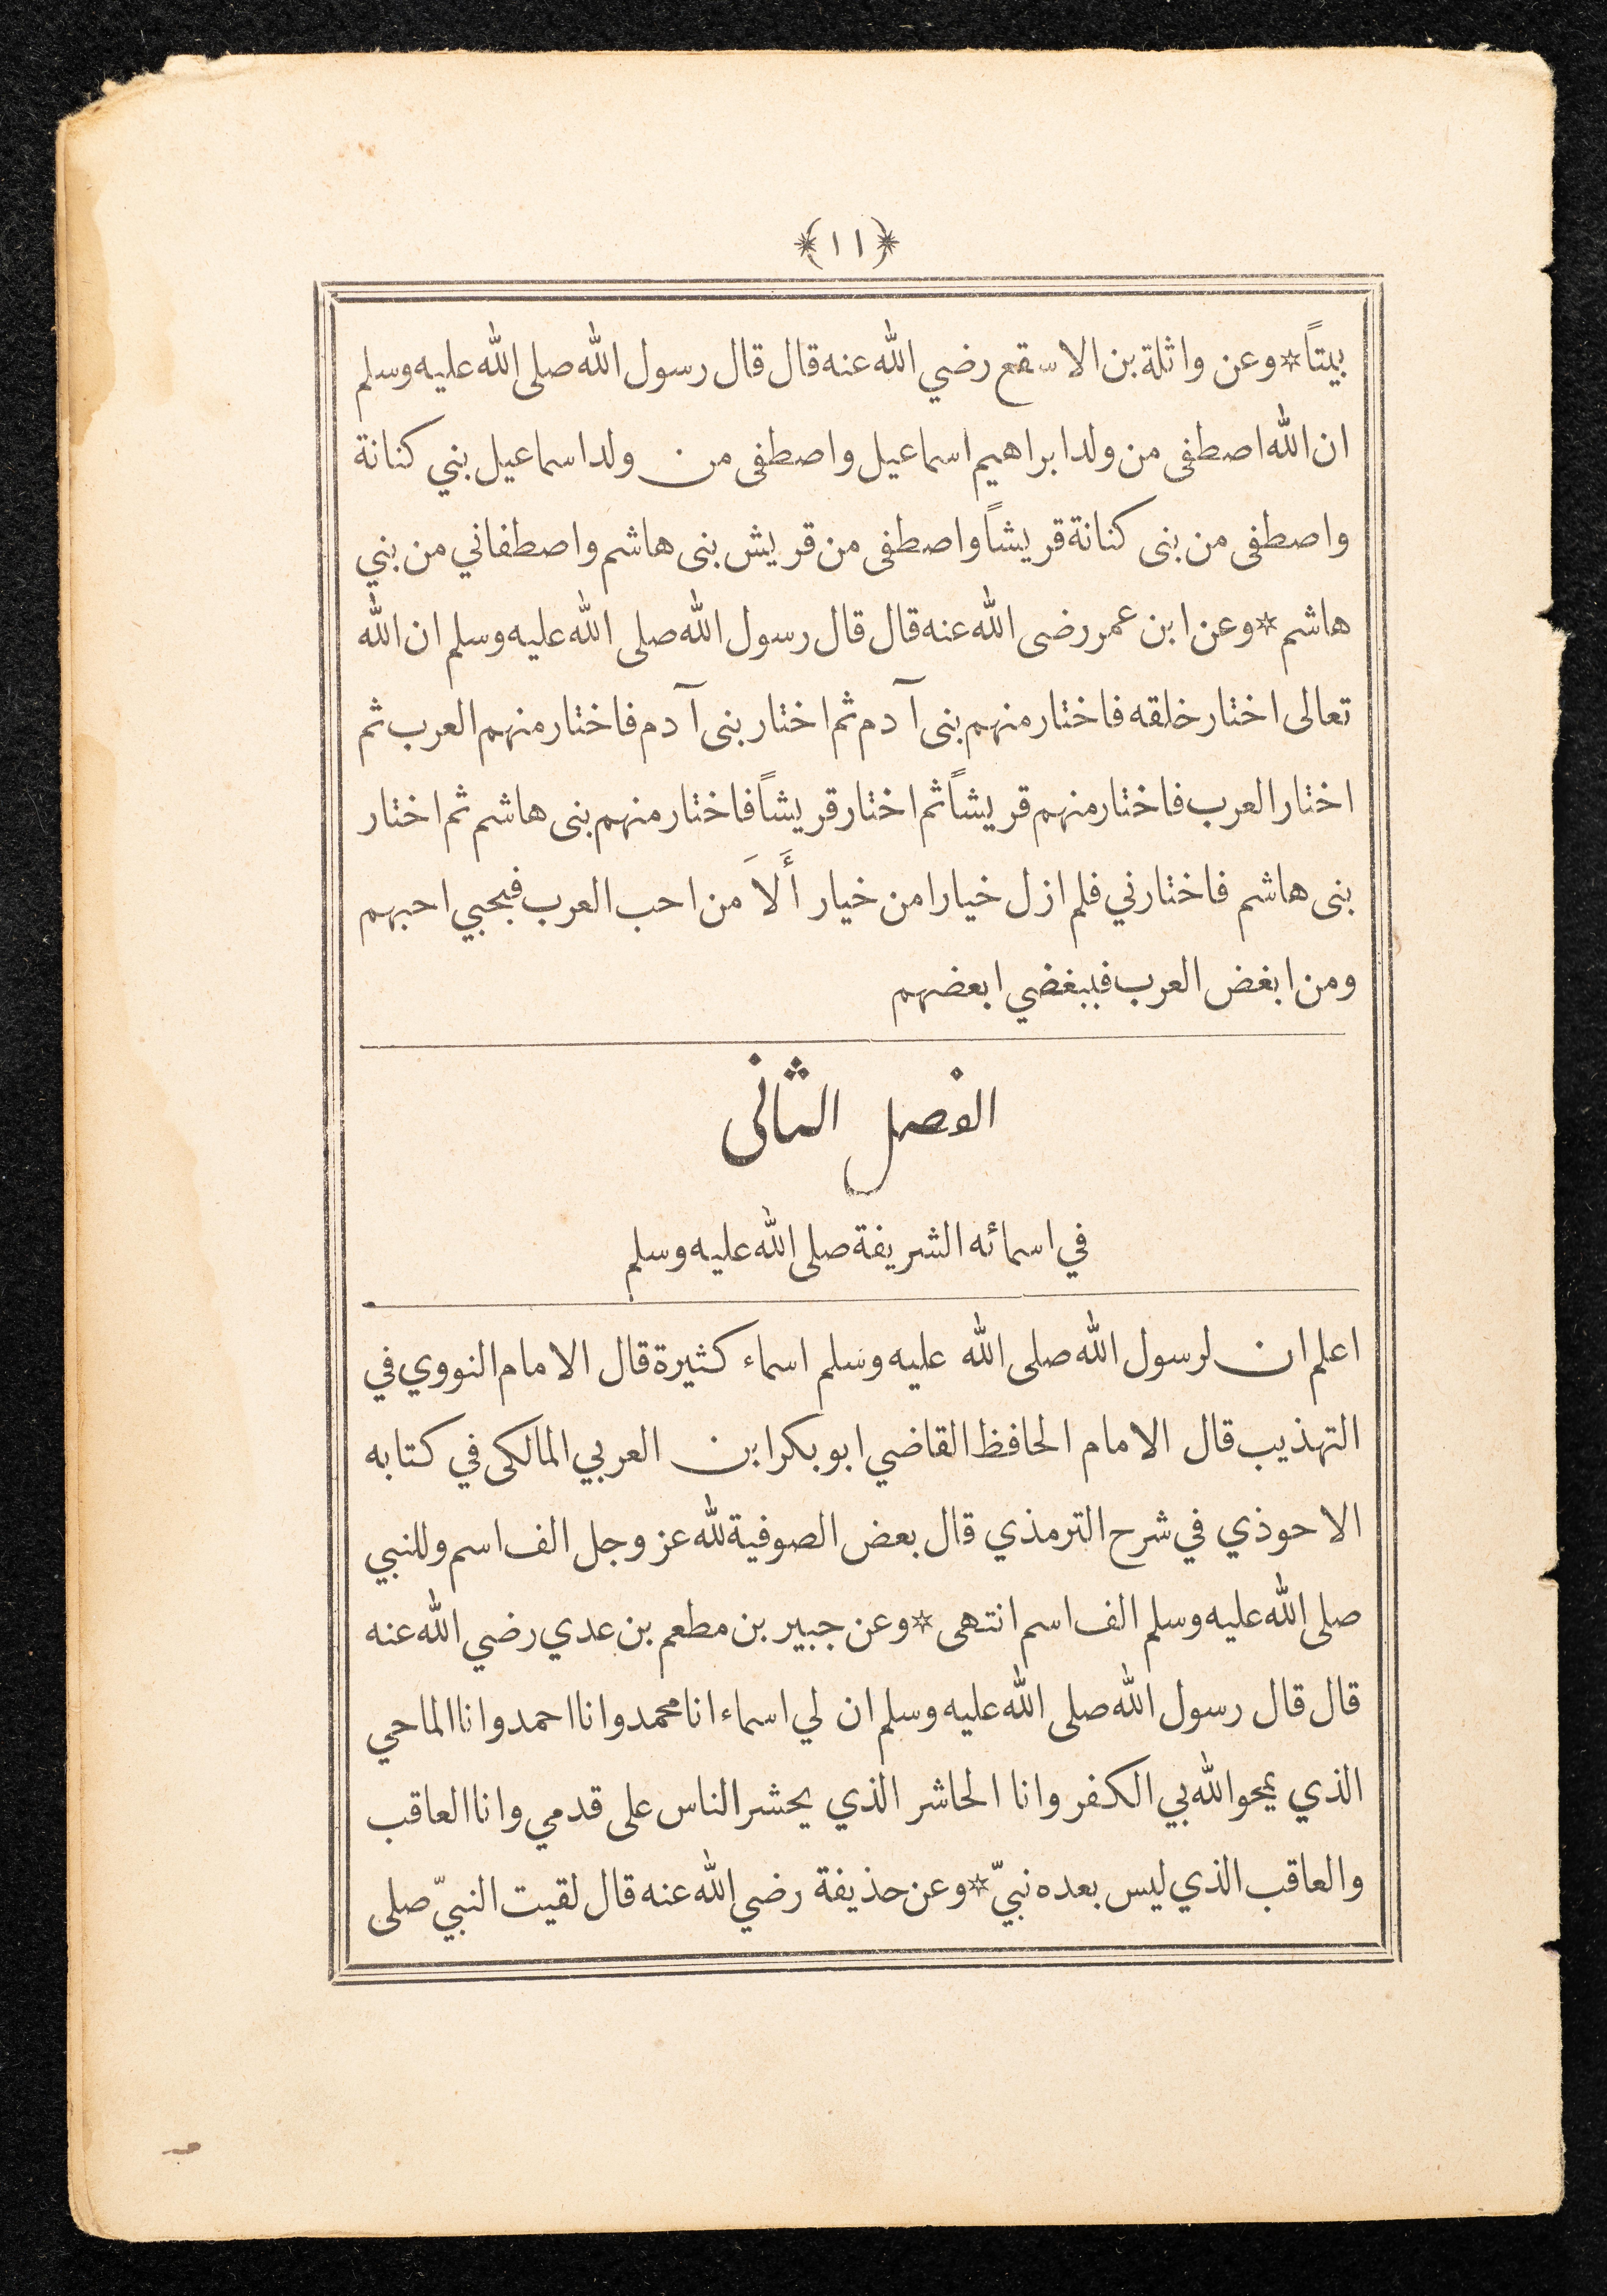 ﴿١١﴾
بيتاً * وعن واثلة بن الاسقع رضي الله عنه قال قال رسول الله صلى الله عليه وسلم
ان الله اصطفى من ولد ابراهيم اسماعيل واصطفى من ولد اسماعيل بني كنانة
واصطفى من بنى كنانة قريشاً واصطفى من قريش بنى هاشم واصطفاني من بني
هاشم * وعن ابن عمر رضى الله عنه قال قال رسول الله صلى الله عليه وسلم ان الله
تعالى اختار خلقه فاختار منهم بنى آدم ثم اختار بنى آدم فاختار منهم العرب ثم
اختار العرب فاختار منهم قريشاً ثم اختار قريشاً فاختار منهم بنى هاشم ثم اختار
بنى هاشم فاختارني فلم ازل خيارا من خيار أَلاَ من احب العرب فبحبي احبهم
ومن ابغض العرب فببغضي ابغضهم
الفصل الثانى
في اسمائه الشريفة صلى الله عليه وسلم
اعلم ان لرسول الله صلى الله عليه وسلم اسماء كثيرة قال الامام النووي في
التهذيب قال الامام الحافظ القاضي ابو بكر ابن العربي المالكى في كتابه
الاحوذي في شرح الترمذي قال بعض الصوفية لله عز وجل الف اسم وللنبي
صلى الله عليه وسلم الف اسم انتهى * وعن جبير بن مطعم بن عدي رضي الله عنه
قال قال رسول الله صلى الله عليه وسلم ان لي اسماء انا محمد وانا احمد وانا الماحي
الذي يمحو الله بي الكفر وانا الحاشر الذي يحشر الناس على قدمي وانا العاقب
والعاقب الذي ليس بعده نبيّ * وعن حذيفة رضي الله عنه قال لقيت النبيّ صلى